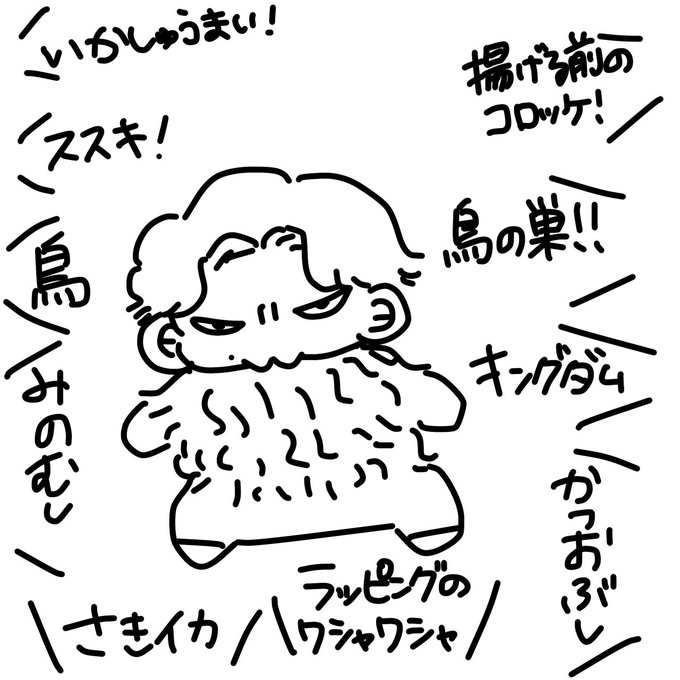 いかしゅうまい!
揚げる前の
コロッケ!
ススキ!
鳥の巣!!
鳥
キングダム
みのむし
かつおぶし
さきイカ
ラッピングの
ワシャワシャ